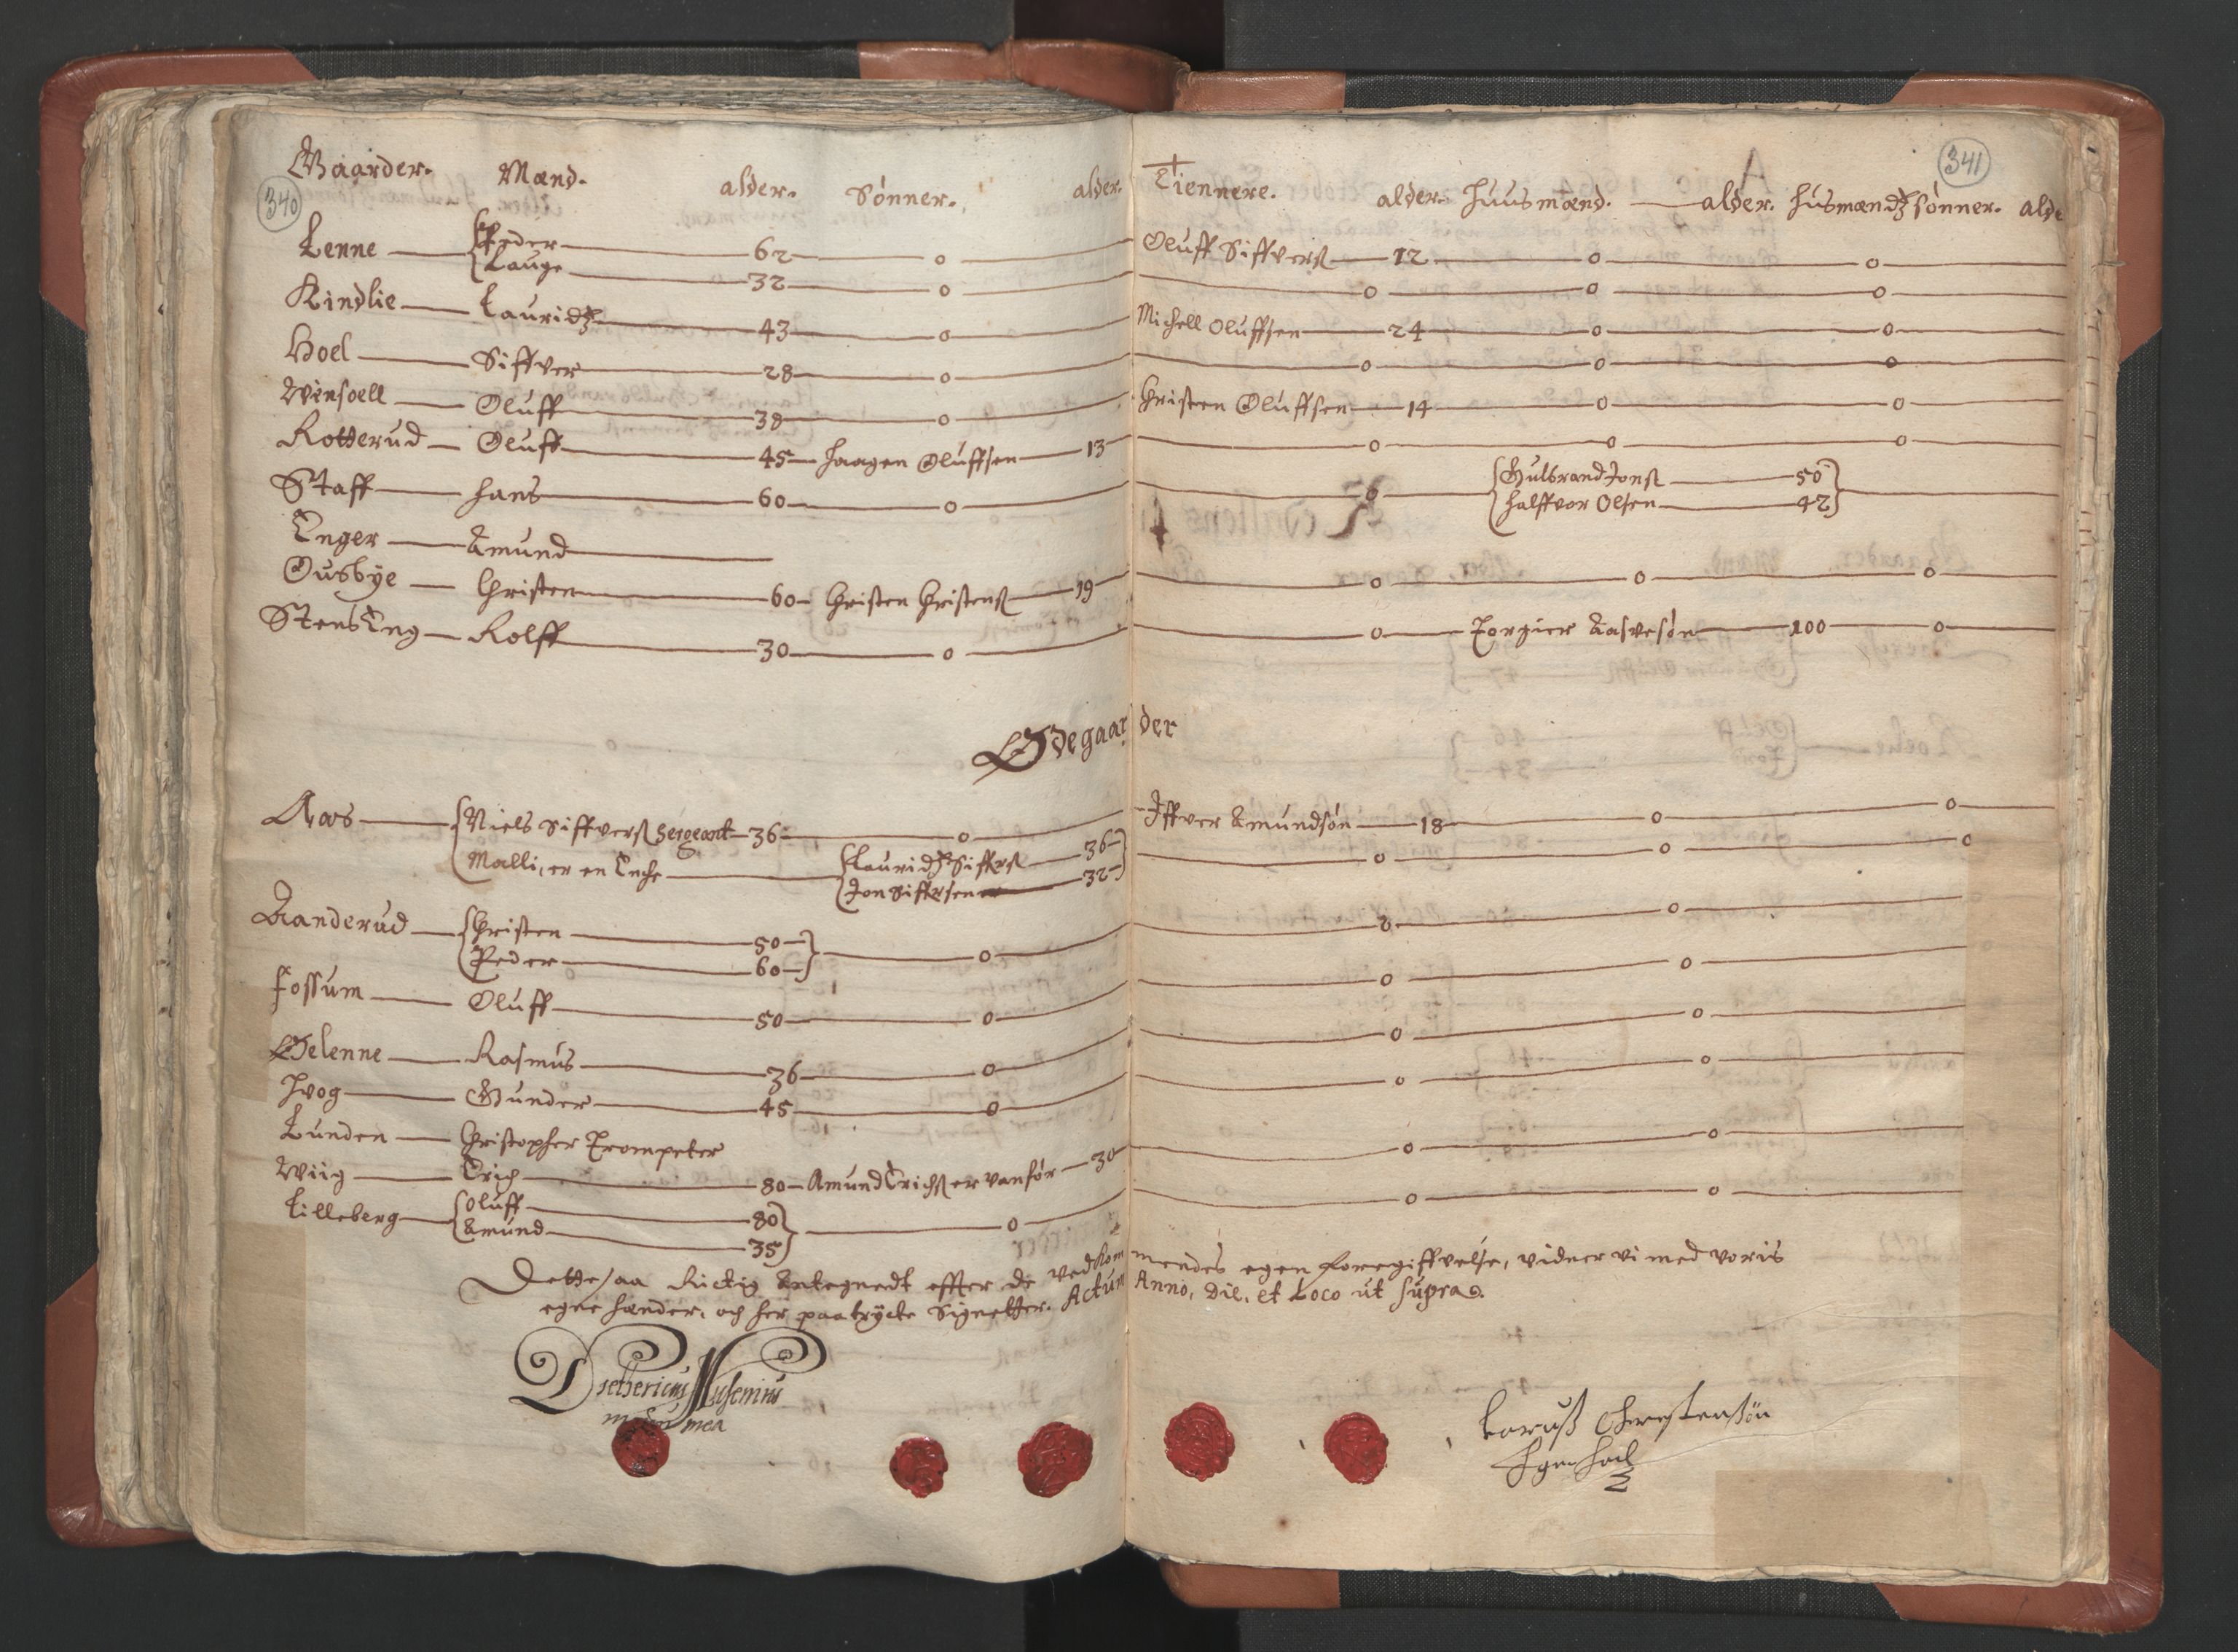 340
Gaarder. Mænd. alder. Sønner. alder. Tiennere. alder. Huusmænd. alder. Husmændz sønner. alde
341
Lenne Peder 62 0 Oluff Siffverß 12 0 0
Lauge 32 0 0 0 0
Kindlie Lauridz 43 0 Michell Oluffsen 24 0 0
Hoel Siffver 28 0 0 0 0
Winsoell Oluff 38 0 Christen Oluffsen 14 0 0
Rotterud Oluff 45 Haagen Oluffsen 13 0 0 0
Staff Hans 60 0 0 Gulbrand Jonß 50
Halffvor Olsen 42
Enger Amund
Ousbye Christen 60 Christen Christenß 19 0 0 0
Stens Eng Rolff 30 0 0 Torgier Aasvesøn 100 0
Ødegaarder
Aas Niels Siffverß Sergeant 36 0 Iffver Amundsøn 18 0 0
Malli, er en Enche Lauridz Siffrß 36 0 0 0
Jon Siffrsen 32
Aanderud Christen 50 0 0 0
Peder 60
Fossum Oluff 50 0 0 0
Gelenne Rasmus 36 0 0 0
Hvog Gunder 45 0 0 0
Lunden Christopher Trompeter
Wiig Erich 80 Amund Erichß er vanfør 30 0 0
Lilleberg Oluff 80 0 0 0
Amund 35
Dette saa Rictig Antegnedt effter de vedkommendes egen foregiffvelse, vidner vi med voris
egne hænder, och her paatrÿcte Signetter. Actum Anno, die, et Loco ut supra.
Diethericus Musenius
manu mea
Laruß Chrestensøn
Egen Hand